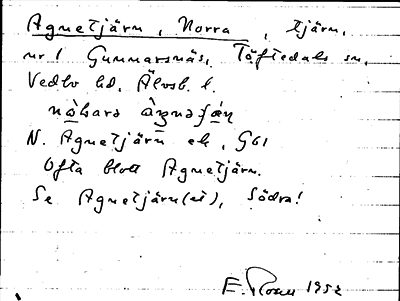 Agnetjärn, Norra, tjärn.
nr 1 Gunnarsnäs, Töftedals sn,
Vedbo hd, Älvsb. l.
N. Agnetjärn ek, G61
Ofta blott Agnetjärn.
Se Agnetjärn(et), Södra!
E. Rosell 1952